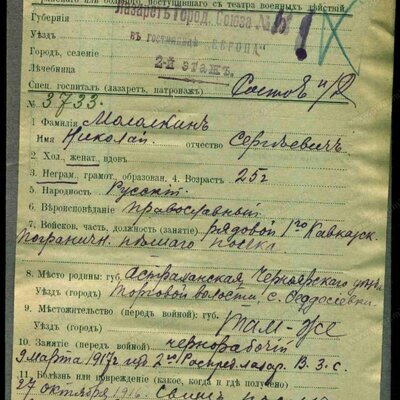 раненого или больного, поступившего с театра военных действий
Лазаретъ Город. Союза №
Губернія
въ гостиницѣ „ЕВРОПА"
Уѣздъ
2-й этажъ.
Городъ, селеніе
Лѣчебница
Спец. госпиталь (лазаретъ, патронажъ) Ростовъ н/Д
№ 3733.
1 Фамилія Малалкинъ
Имя Николай отчество Сергѣевичъ
2. Хол., женат., вдовъ.
3. Неграм., грамот., образован. 4. Возрастъ 25 г
5. Народность Русскій
6. Вѣроисповѣданіе православный
7. Войсков. часть, должность (занятіе) рядовой 1го Кавказск.
Погранич. пѣшаго полка
8. Мѣсто родины: губ. Астраханская Черноярскаго уѣзда
Уѣздъ (городъ) Торговой волости, с. Феддосѣевки
9. Мѣстожительство (передъ войной): губ.
Уѣздъ (городъ) Там-же
10. Занятіе (передъ войной) чернорабочій
9 марта 1917 г 2го Распред. лазар. В. З. С.
11. Болѣзнь или поврежденіе (какое, когда и гдѣ получено)
27 октября 1916